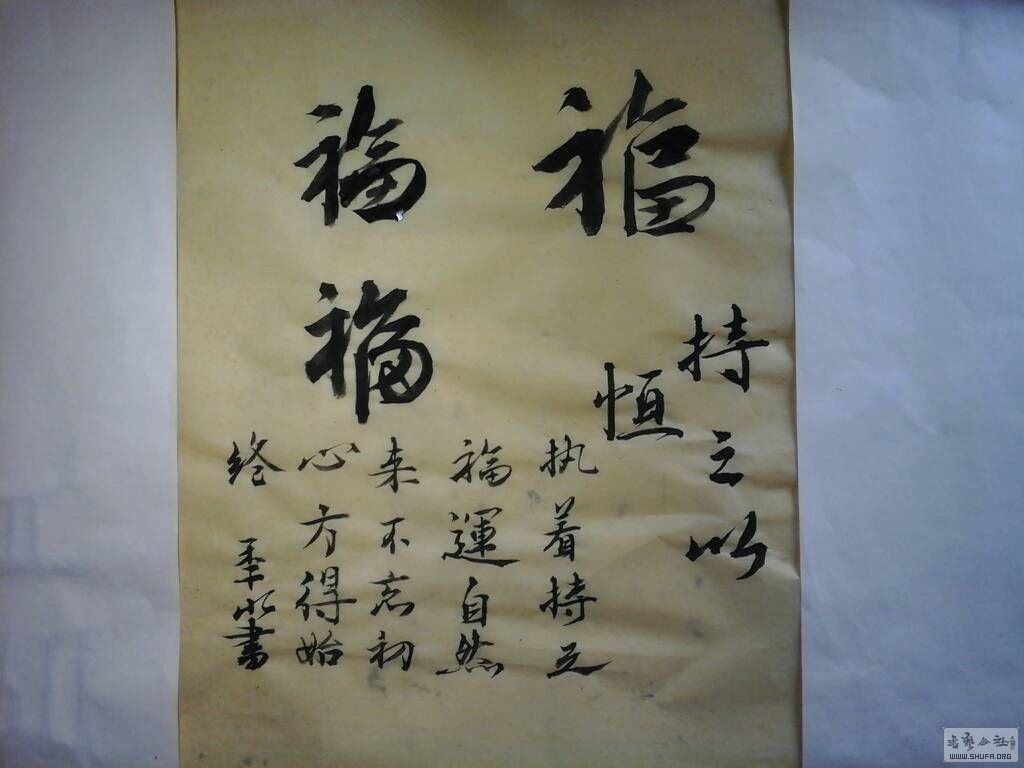 福
福
福
持之以
恒
执着持之
福運自然
来不忘初
心方得始
终
季水書
WWW.SHUFA.ORG